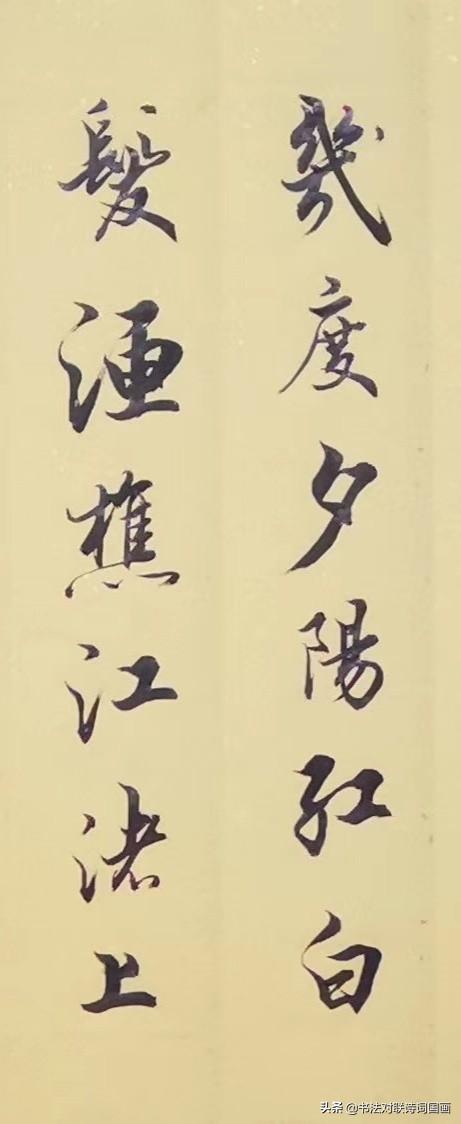 幾度夕陽紅白
髮漁樵江渚上
头条 @书法对联诗词国画